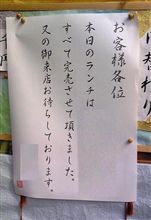 お客様各位
本日のランチは
すべて完売させて頂きました。
又の御来店お待ちしております。